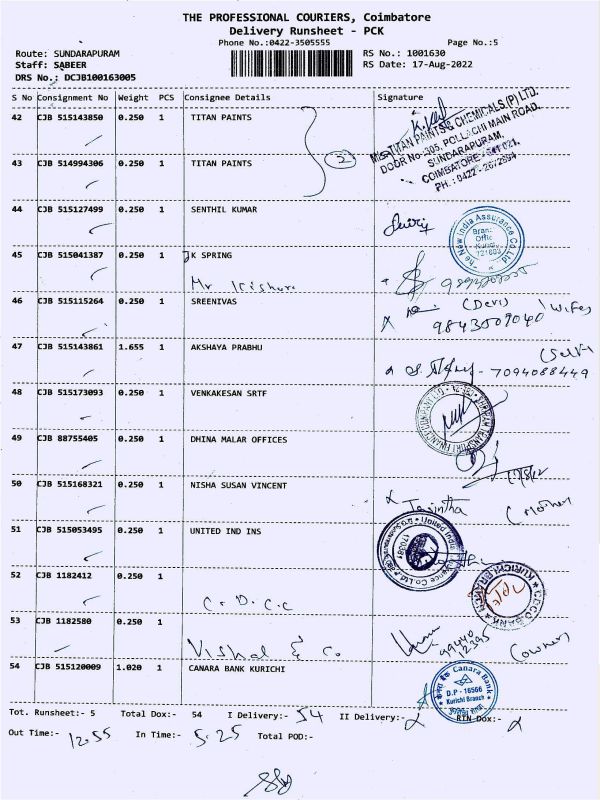 THE PROFESSIONAL COURIERS, Coimbatore
Delivery Runsheet - PCK
Phone No.:0422-3505555 Page No.:5
Route: SUNDARAPURAM RS No.: 1001630
Staff: SABEER RS Date: 17-Aug-2022
DRS No.: DCJB100163005
S No Consignment No Weight PCS Consignee Details Signature
42 CJB 515143850 0.250 1 TITAN PAINTS
M/s. TITAN PAINTS & CHEMICALS (P) LTD.
DOOR No. 305, POLLACHI MAIN ROAD,
SUNDARAPURAM,
COIMBATORE - 641 021.
PH. : 0422 - 2672894
2
43 CJB 514994306 0.250 1 TITAN PAINTS
44 CJB 515127499 0.250 1 SENTHIL KUMAR
The New India Assurance Co. Ltd
45 CJB 515041387 0.250 1 JK SPRING
Mr Kishore
46 CJB 515115264 0.250 1 SREENIVAS
(Devi) (wife)
9843509040
47 CJB 515143861 1.655 1 AKSHAYA PRABHU
(Self)
7094088449
48 CJB 515173093 0.250 1 VENKAKESAN SRTF
49 CJB 88755405 0.250 1 DHINA MALAR OFFICES
50 CJB 515168321 0.250 1 NISHA SUSAN VINCENT
Jasintha (Mother)
51 CJB 515053495 0.250 1 UNITED IND INS
170381
52 CJB 1182412 0.250 1
C.D.C.C
KURICHI BRANCH
53 CJB 1182580 0.250 1
Vishal & Co (owner)
99440
12395
54 CJB 515120009 1.020 1 CANARA BANK KURICHI
Canara Bank
D.P - 16566
Kurichi Branch
Tot. Runsheet:- 5 Total Dox:- 54 I Delivery:- 54 II Delivery:- RTN Dox:-
Out Time:- 12.55 In Time:- 5.25 Total POD:-